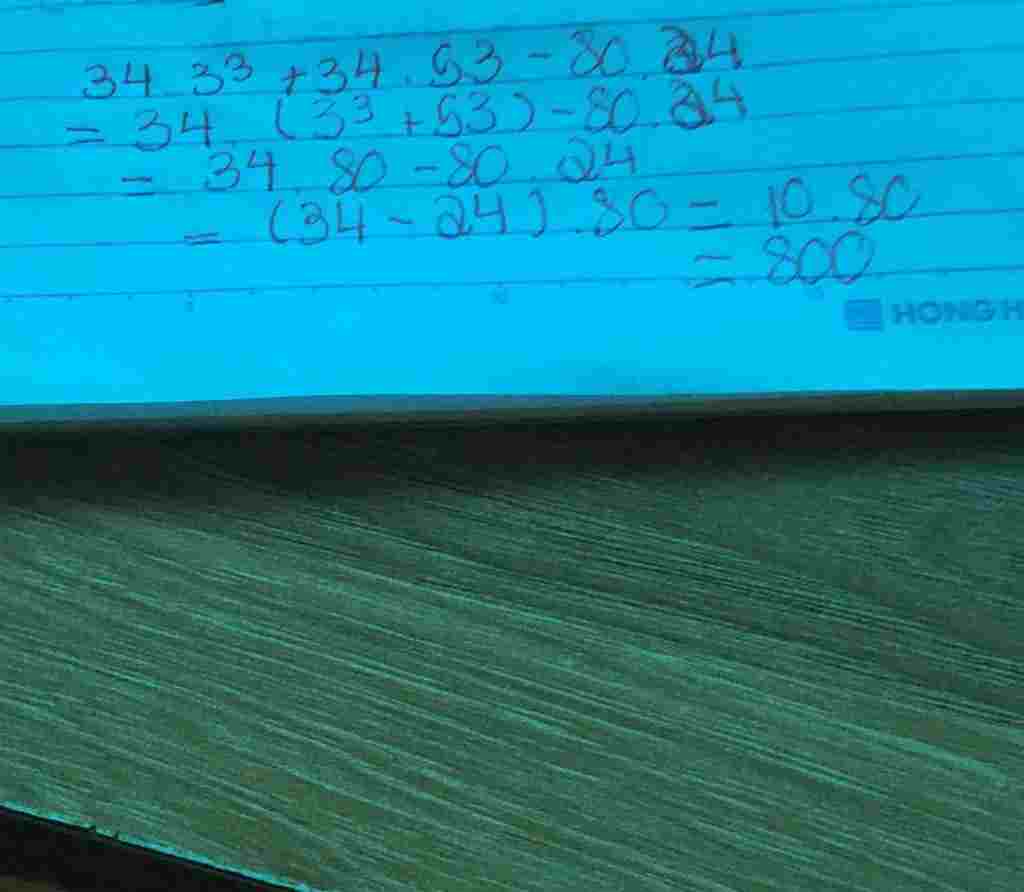 34 3³ + 34 . 53 - 80 . 24
= 34 . (3³ + 53) - 80 . 24
= 34 . 80 - 80 . 24
= (34 - 24) . 80 = 10 . 80
= 800
HONG H